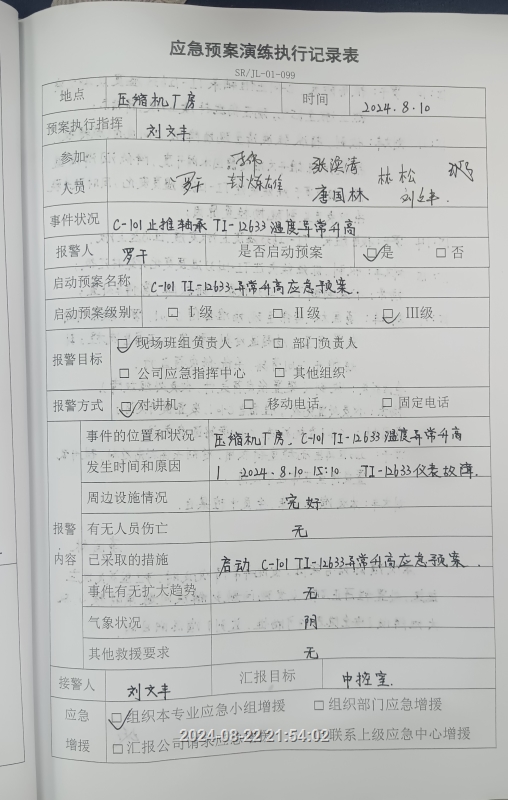 应急预案演练执行记录表
SR/JL-01-099
地点 压缩机厂房 时间 2024.8.10
预案执行指挥 刘文丰
参加人员 罗干 封炼雄 张溪涛 唐国林 林松 刘文丰
事件状况 C-101止推轴承 TI-12633温度异常升高
报警人 罗干 是否启动预案 ☑是 □否
启动预案名称 C-101 TI-12633异常升高应急预案.
启动预案级别: □ I级 □ II级 ☑ III级
报警目标 ☑现场班组负责人 □ 部门负责人
□ 公司应急指挥中心 □ 其他组织
报警方式 ☑对讲机 □ 移动电话 □ 固定电话
报警内容
事件的位置和状况 压缩机厂房, C-101 TI-12633温度异常升高
发生时间和原因 1 2024.8.10 15:10 TI-12633仪表故障.
周边设施情况 完好
有无人员伤亡 无
已采取的措施 启动 C-101 TI-12633异常升高应急预案.
事件有无扩大趋势 无
气象状况 阴
其他救援要求 无
接警人 刘文丰 汇报目标 中控室.
应急增援 ☑组织本专业应急小组增援 □组织部门应急增援
□汇报公司请求应急 联系上级应急中心增援
2024-08-22 21:54:02